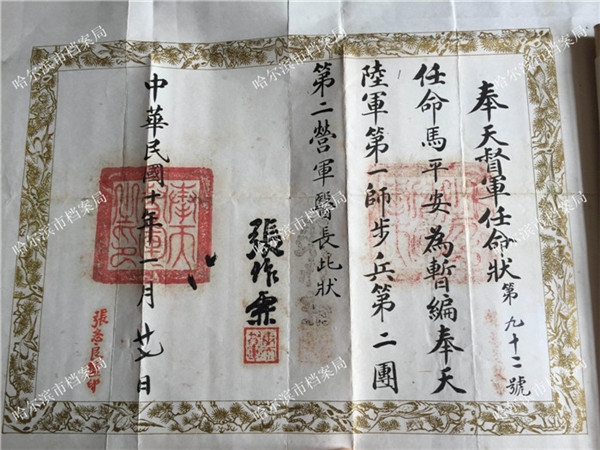 奉天督軍任命狀 第九十二號
任命馬平安為暫編奉天
陸軍第一師步兵第二團
第二營軍醫長此狀
張作霖
中華民國十年一月廿七日
哈尔滨市档案局
哈尔滨市档案局
哈尔滨市档案局
哈尔滨市档案局
哈尔滨市档案局
哈尔滨市档案局